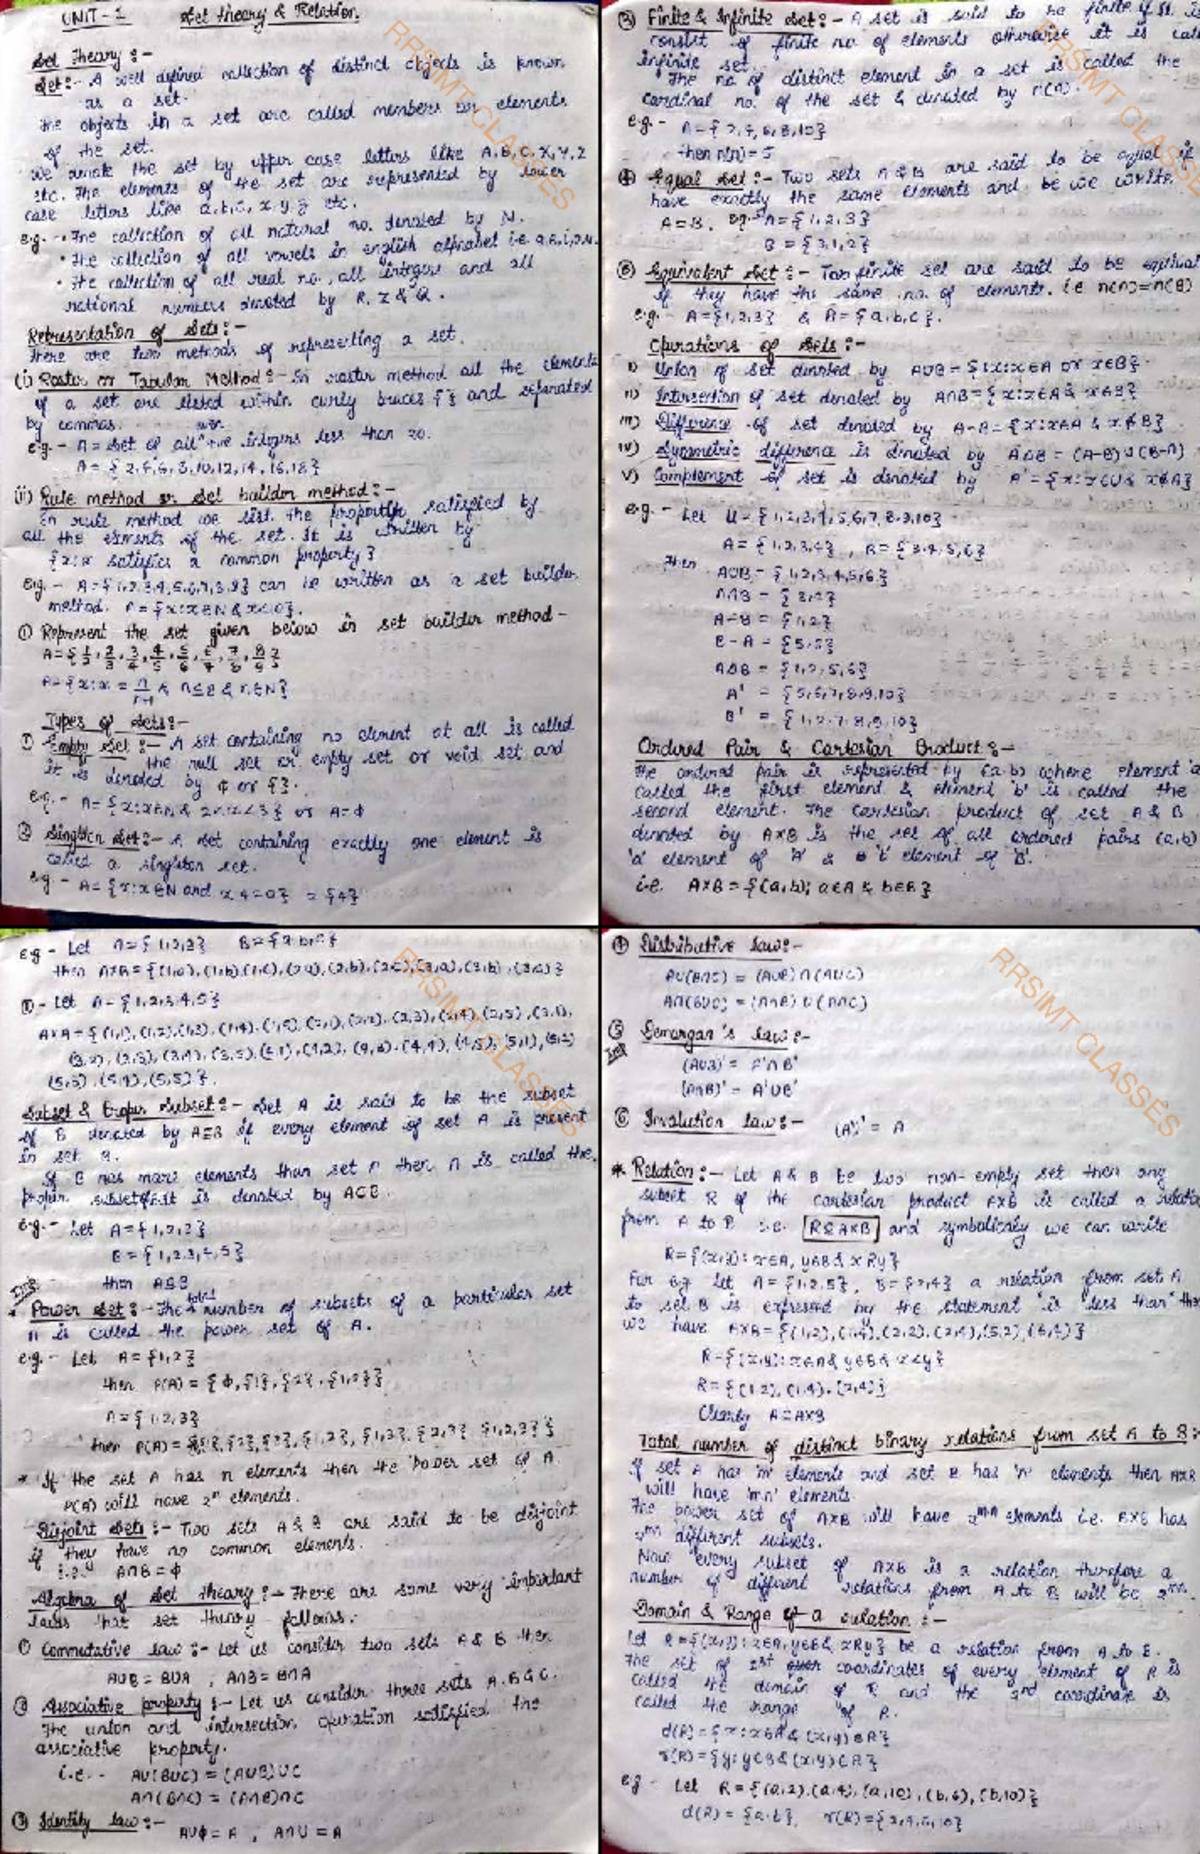 UNIT-1 Set theory & Relation
Set Theory :-
Set :- A well defined collection of distinct objects is known
as a set.
The objects in a set are called members or elements
of the set.
We denote the set by upper case letters like A, B, C, X, Y, Z
etc. The elements of the set are represented by lower
case letters like a, b, c, x, y, z etc.
e.g. - • The collection of all natural no. denoted by N.
• The collection of all vowels in english alphabet i.e. a, e, i, o, u.
• The collection of all real no., all integers and all
rational numbers denoted by R, Z & Q.
Representation of Sets :-
There are two methods of representing a set.
(i) Roster or Tabular Method :- In roster method all the elements
of a set are listed within curly braces { } and separated
by commas.
e.g. - A = Set of all even +ve integers less than 20.
A = { 2, 4, 6, 8, 10, 12, 14, 16, 18 }
(ii) Rule method or Set builder method :-
In rule method we list the property satisfied by
all the elements of the set. It is written by
{ x : x satisfies a common property }
e.g. - A = {1,2,3,4,5,6,7,8,9} can be written as a set builder
method. A = { x : x ∈ N & x<10 }.
① Represent the set given below in set builder method -
A = { 1/2, 2/3, 3/4, 4/5, 5/6, 6/7, 7/8, 8/9 }
A = { x : x = n/n+1 & n ≤ 8 & n ∈ N }
Types of Sets :-
① Empty Set :- A set containing no element at all is called
the null set or empty set or void set and
it is denoted by ϕ or { }.
e.g. - A = { x : x ∈ N & 2<x<3 } or A = ϕ
② Singleton Set :- A set containing exactly one element is
called a singleton set.
e.g - A = { x : x ∈ N and = {4}
③ Finite & Infinite Set :- A set is said to be finite if it is
consist of finite no. of elements otherwise it is call
infinite set.
The no. of distinct element in a set is called the
cardinal no. of the set & denoted by n(A).
e.g. - A = { 2, 4, 6, 8, 10 }
then n(A) = 5
④ Equal Set :- Two sets A & B are said to be equal if
have exactly the same elements and be we write
A = B. eg:- A = { 1, 2, 3 }
B = { 3, 1, 2 }
⑤ Equivalent Set :- Two finite set are said to be equival
if they have the same no. of elements. i.e n(A) = n(B)
e.g. - A = {1, 2, 3} & A = {a, b, c}.
Operations of Sets :-
i) Union of set denoted by A∪B = { x : x ∈ A or x ∈ B }
ii) Intersection of set denoted by A∩B = { x : x ∈ A & x ∈ B }
iii) Difference of set denoted by A-B = { x : x ∈ A & x ∉ B }
iv) Symmetric difference is denoted by AΔB = (A-B) ∪ (B-A)
v) Complement of set is denoted by A' = { x : x ∈ U & x ∉ A }
e.g. - Let U = { 1, 2, 3, 4, 5, 6, 7, 8, 9, 10 }
A = { 1, 2, 3, 4 } , B = { 3, 4, 5, 6 }
Then A∪B = { 1, 2, 3, 4, 5, 6 }
A∩B = { 3, 4 }
A-B = { 1, 2 }
B-A = { 5, 6 }
AΔB = { 1, 2, 5, 6 }
A' = { 5, 6, 7, 8, 9, 10 }
B' = { 1, 2, 7, 8, 9, 10 }
Ordered Pair & Cartesian Product :-
The ordered pair is represented by (a, b) where element 'a
called the first element & element 'b' is called the
second element. The Cartesian product of set A & B
denoted by A×B is the set of all ordered pairs (a, b)
'a' element of 'A' & 'b' element of 'B'.
i.e. A×B = { (a, b); a ∈ A & b ∈ B }
e.g - Let A = { 1, 2, 3 } B = { a, b, c }
then A×B = { (1,a), (1,b), (1,c), (2,a), (2,b), (2,c), (3,a), (3,b), (3,c) }
① - Let A = { 1, 2, 3, 4, 5 }
A×A = { (1,1), (1,2), (1,3), (1,4), (1,5), (2,1), (2,2), (2,3), (2,4), (2,5), (3,1),
(3,2), (3,3), (3,4), (3,5), (4,1), (4,2), (4,3), (4,4), (4,5), (5,1), (5,2)
(5,3), (5,4), (5,5) }.
Subset & Proper Subset :- Set A is said to be the subset
of B denoted by A⊆B if every element of set A is present
in set B.
If B has more elements than set A then A is called the
proper subset & it is denoted by A⊂B.
e.g. - Let A = { 1, 2, 3 }
B = { 1, 2, 3, 4, 5 }
then A⊆B
Imp
* Power Set :- The total number of subsets of a particular set
A is called the power set of A.
e.g. - Let A = { 1, 2 }
then P(A) = { ϕ, {1}, {2}, {1,2} }
A = { 1, 2, 3 }
then P(A) = {2}, {3}, {1,2}, {1,3}, {2,3} {1,2,3} }
* If the set A has n elements then the power set of A
P(A) will have 2ⁿ elements.
Disjoint Sets :- Two sets A & B are said to be disjoint
if they have no common elements.
i.e. A∩B = ϕ
Algebra of Set Theory :- There are some very important
laws that set theory follows.
① Commutative law :- Let us consider two sets A & B then
A∪B = B∪A , A∩B = B∩A
② Associative property :- Let us consider three sets A, B & C.
The union and intersection operation satisfied the
associative property.
i.e. - A∪(B∪C) = (A∪B)∪C
A∩(B∩C) = (A∩B)∩C
③ Identity law :- A∪ϕ = A , A∩U = A
④ Distributive law :-
A∪(B∩C) = (A∪B)∩(A∪C)
A∩(B∪C) = (A∩B)∪(A∩C)
⑤ Demorgan's law :-
Imp
(A∪B)' = A'∩B'
(A∩B)' = A'∪B'
⑥ Involution law :- (A')' = A
* Relation :- Let A & B be two non-empty set then any
subset R of the cartesian product A×B is called a relation
from A to B i.e. R⊆A×B and symbolically we can write
R = { (x, y) : x ∈ A, y ∈ B & x R y }
For e.g. Let A = { 1, 2, 5 }, B = { 2, 4 } a relation from set A
to set B is expressed by the statement "is less than" the
we have A×B = { (1,2), (1,4), (2,2), (2,4), (5,2), (5,4) }
R = { (x, y) : x ∈ A & y ∈ B & x<y }
R = { (1,2), (1,4), (2,4) }
Clearly
Total number of distinct binary relations from set A to B :-
If set A has 'm' elements and set B has 'n' elements then A×B
will have 'mn' elements.
The power set of A×B will have 2ᵐⁿ elements i.e. A×B has
2ᵐⁿ different subsets.
Now every subset of A×B is a relation therefore a
number of different relations from A to B will be 2ᵐⁿ.
Domain & Range of a relation :-
Let R = { (x, y) : x ∈ A, y ∈ B & x R y } be a relation from A to B.
The set of 1st coordinates of every element of R is
called the domain of R and the 2nd coordinate is
called the range of R.
d(R) = { x : x ∈ A & (x, y) ∈ R }
r(R) = { y : y ∈ B & (x, y) ∈ R }
e.g - Let R = { (a, 2), (a, 4), (a, 10), (b, 6), (b, 10) }
d(R) = { a, b }, r(R) = { 2, 4, 6, 10 }
RRSIMT CLASSES
RRSIMT CLASSES
RRSIMT CLASSES
RRSIMT CLASSES